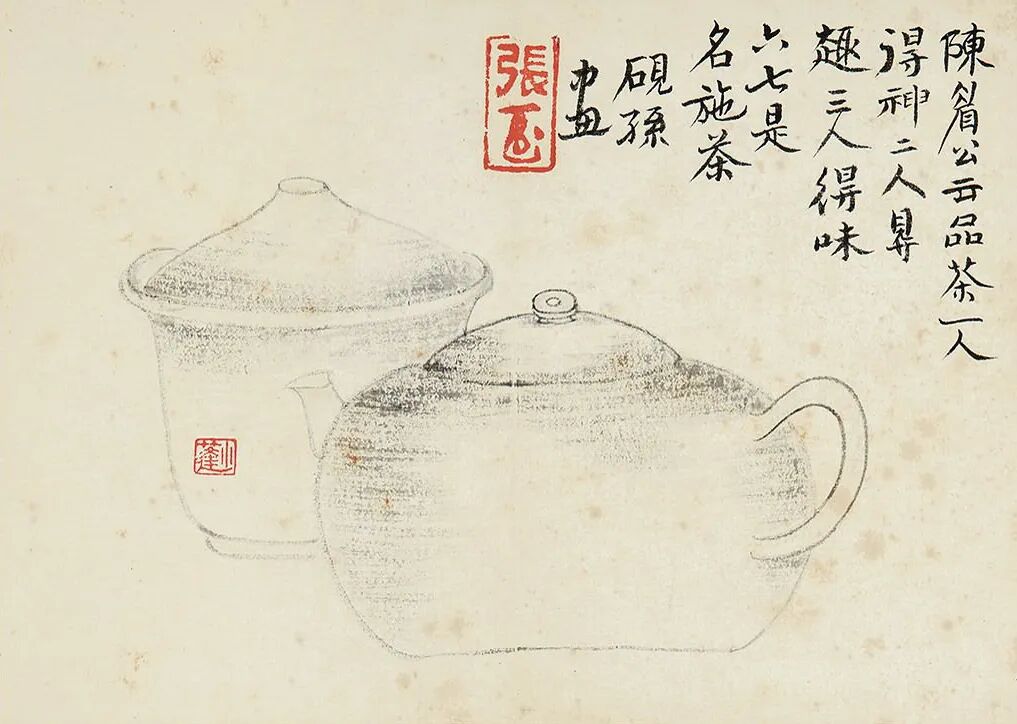 陳眉公云品茶一人
淂神二人㝵
趣三人得味
六七是
名施茶
硯孫
畫
張